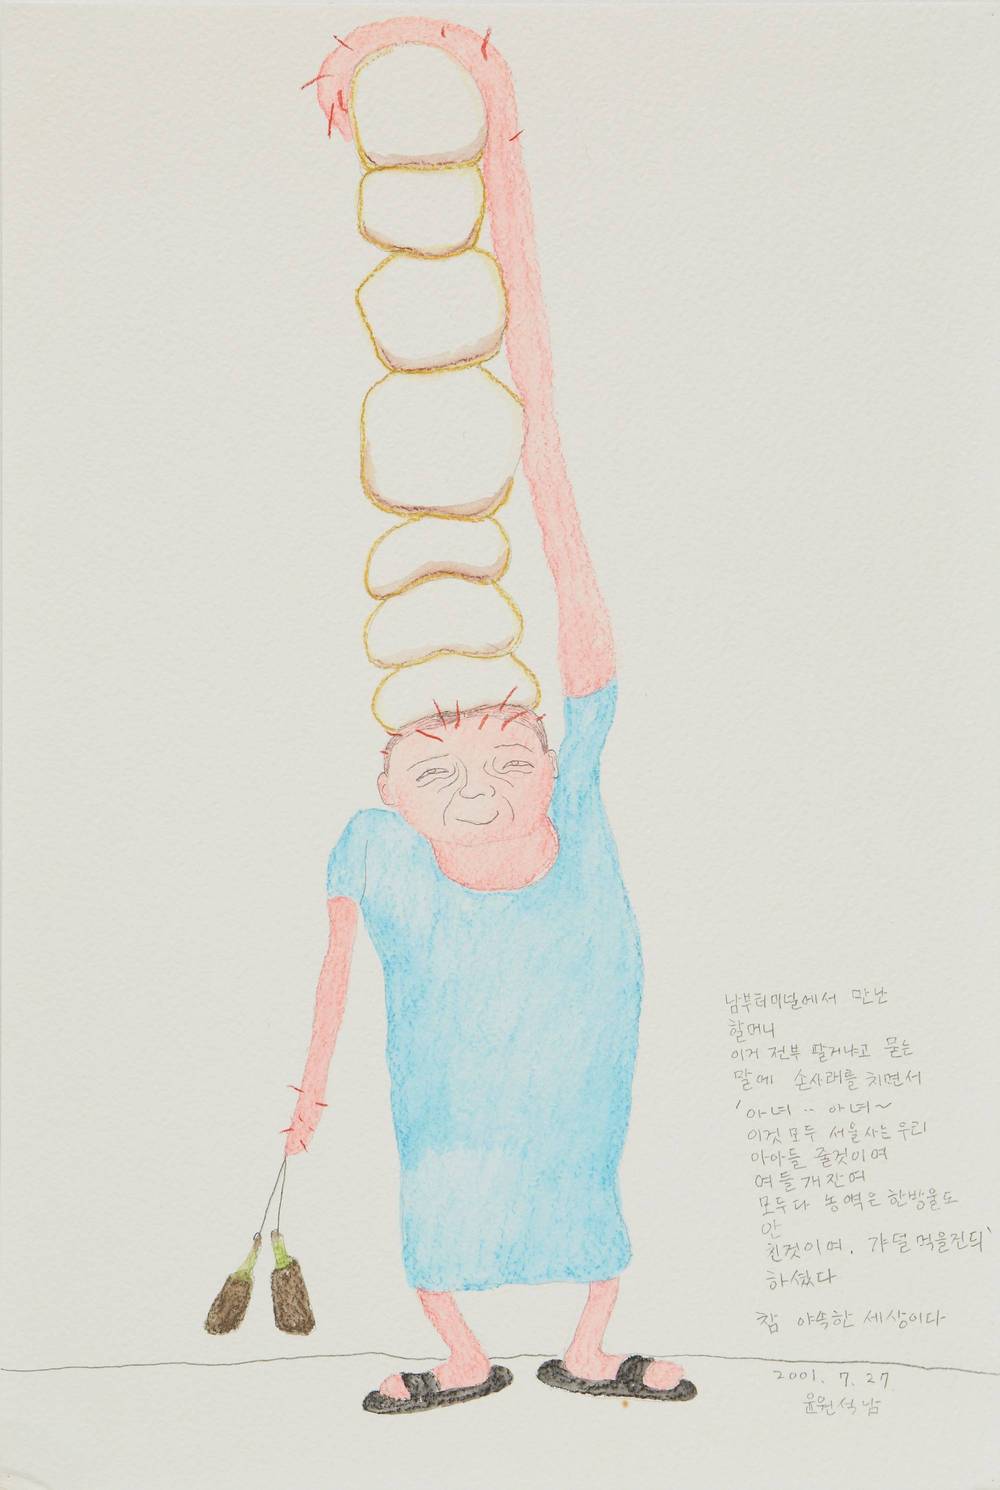 남부터미널에서 만난
할머니
이거 전부 팔거냐고 묻는
말에 손사래를 치면서
'아녀 .. 아녀~
이것 모두 서울 사는 우리
아아들 줄것이여
여들개잔여
모두 다 농약은 한방울도
안
친것이여. 갸덜 먹을건듸'
하셨다
참 야속한 세상이다
2001. 7. 27
윤석남